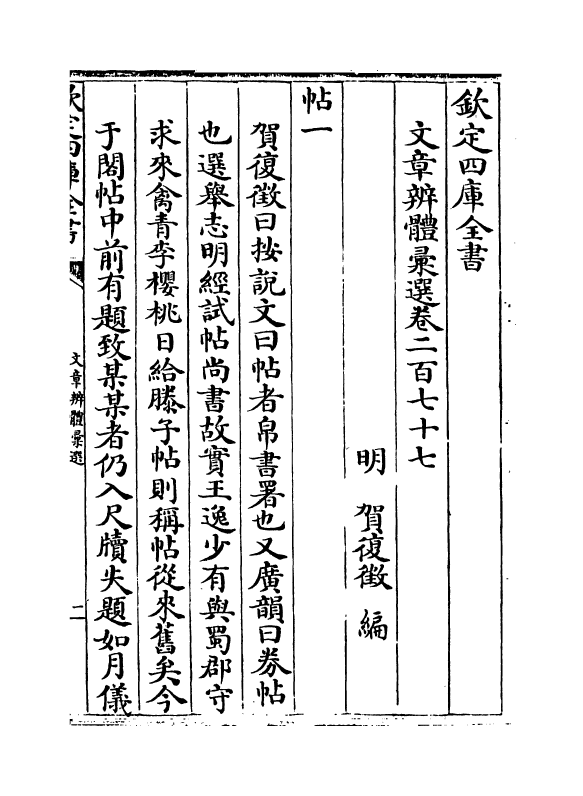 欽定四庫全書
文章辨體彚選卷二百七十七
明 賀復徵 編
帖一
賀復徵曰按說文曰帖者帛書署也又廣韻曰券帖
也選舉志明經試帖尚書故實王逸少有與蜀郡守
求來禽青李櫻桃日給滕子帖則稱帖從來舊矣今
于閣帖中前有題致某某者仍入尺牘失題如月儀
欽定四庫全書
文章辨體彚選
二